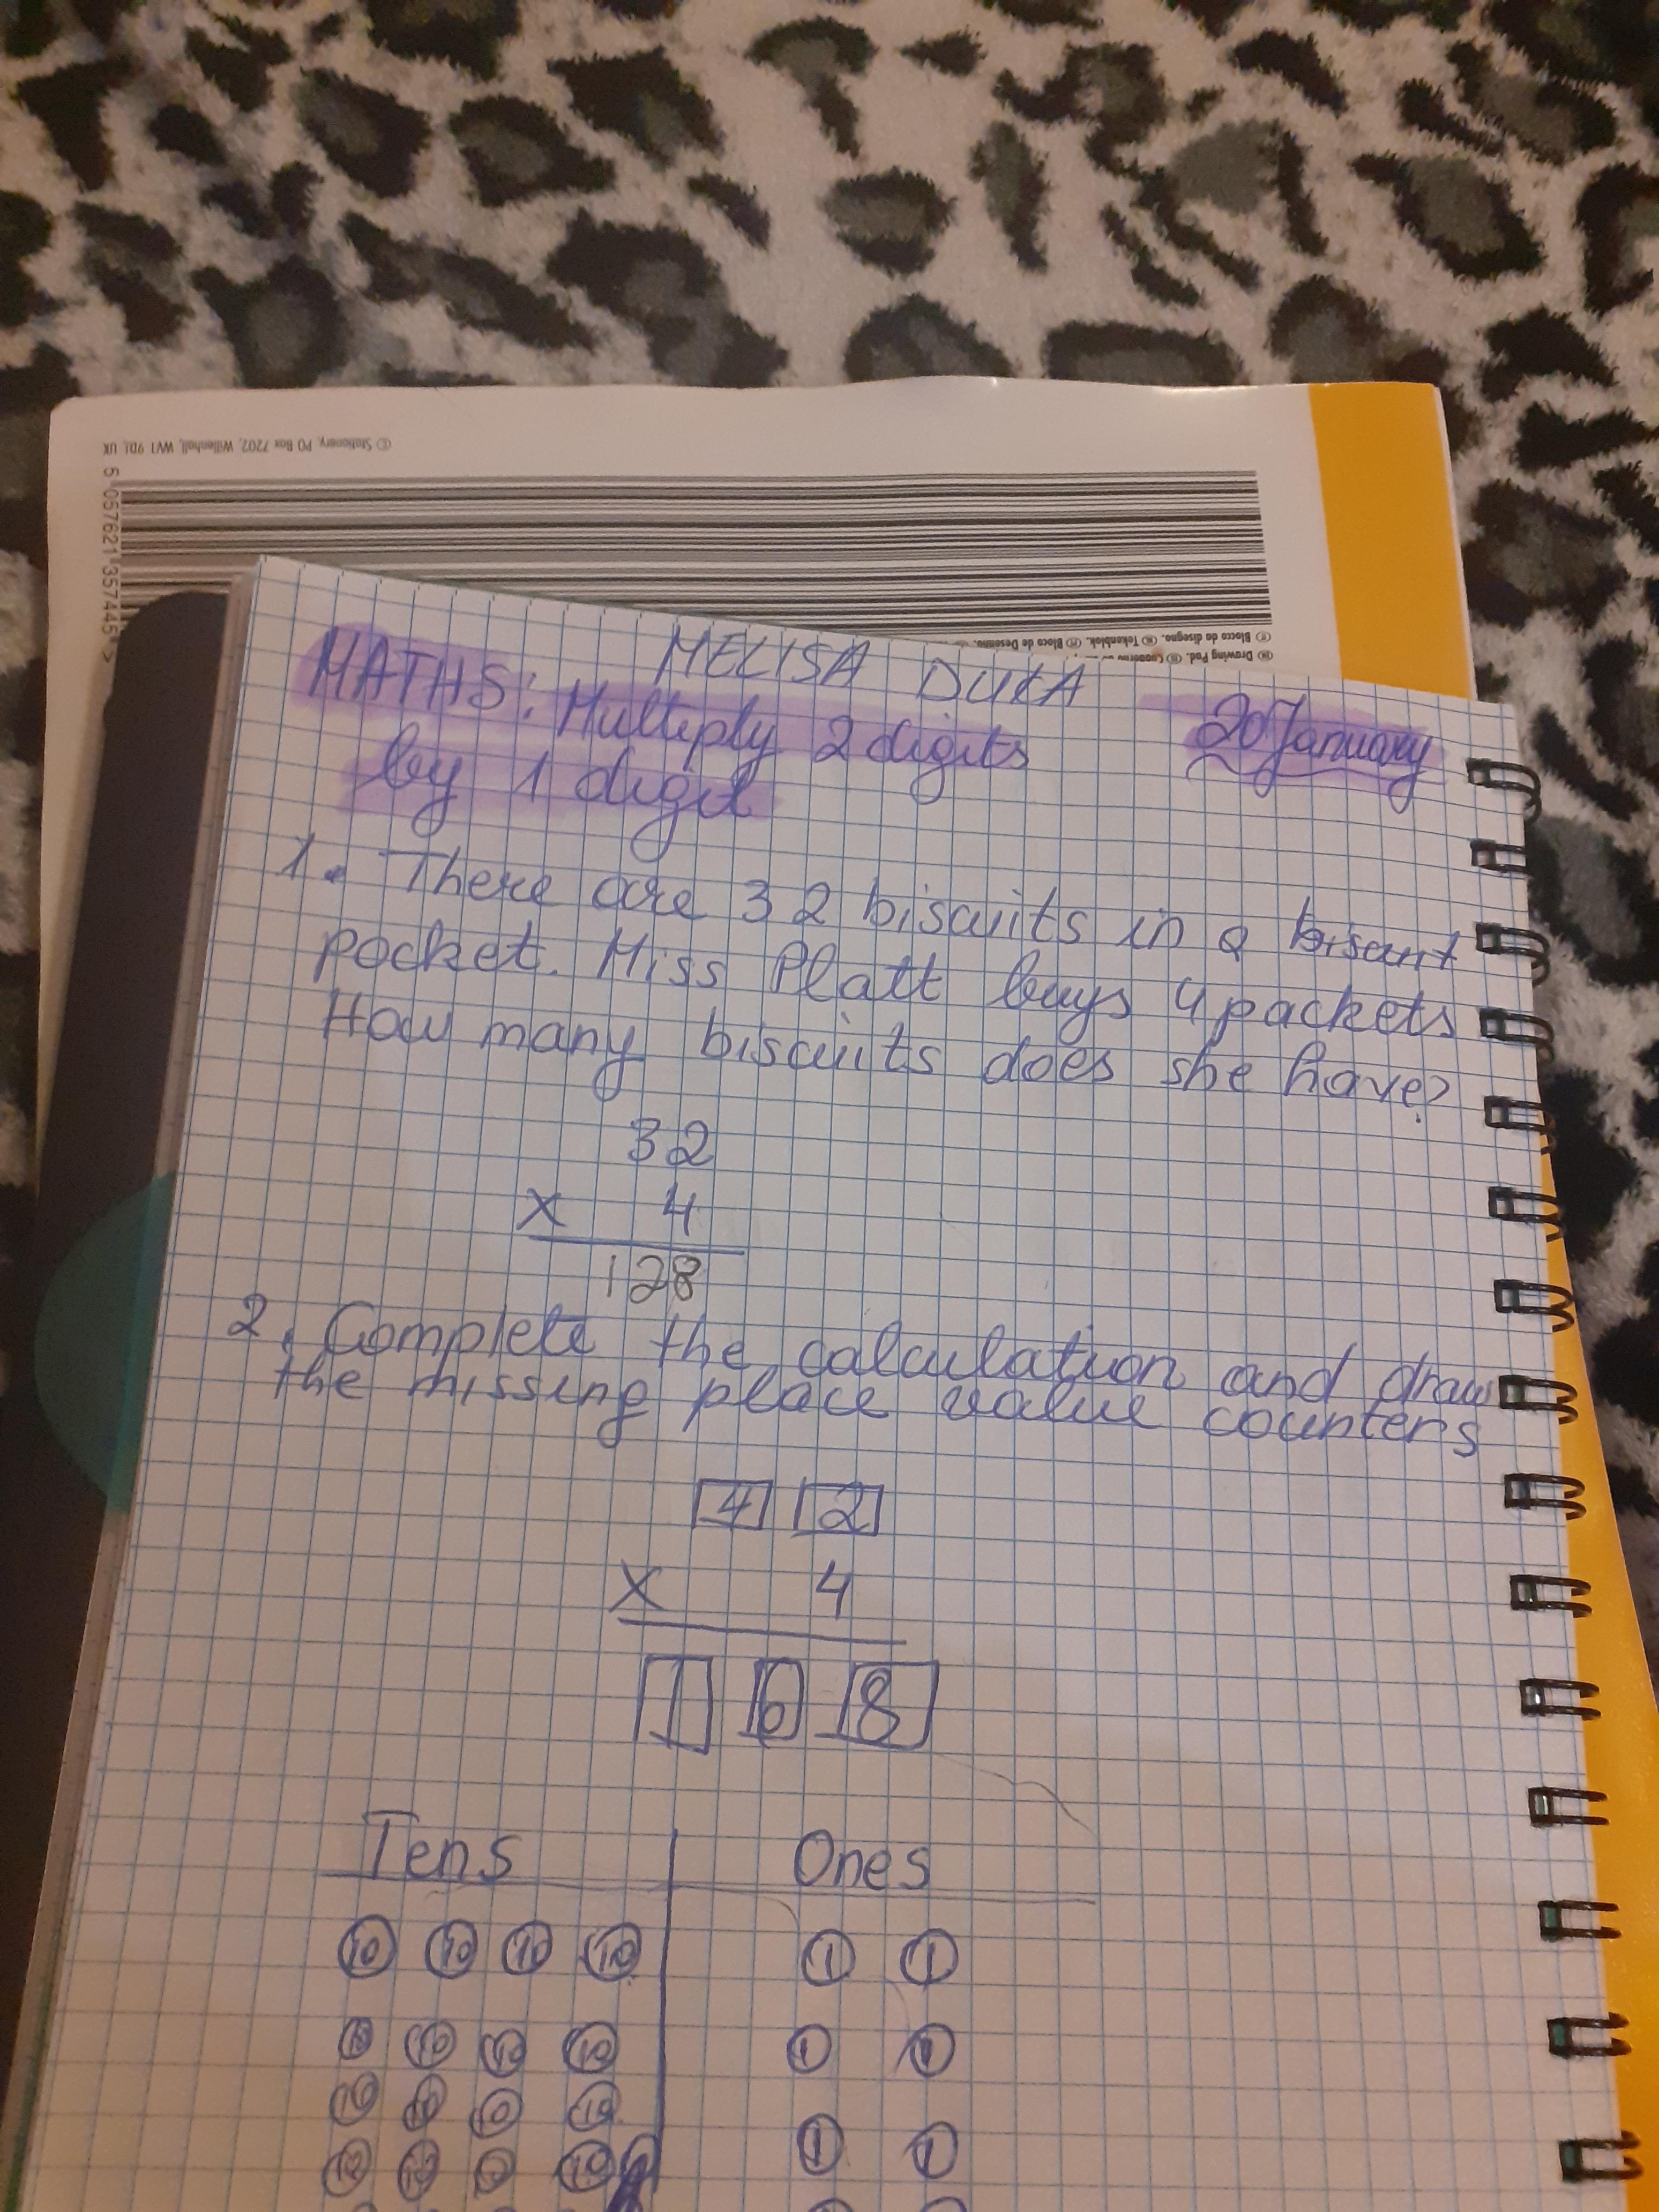 Ⓔ Stationery, PO Box 7202, Willenhall, WV1 9DJ, UK
5 057621 357445 >
Blocco da disegno. Tekenblok. Bloco de Desenho.
Drawing Pad.
MELISA DUKA
MATHS: Multiply 2 digits
by 1 digit
20 January
1. There are 32 biscuits in a biscuit
pocket. Miss Platt buys 4 packets
How many biscuits does she have?
32
x 4
128
2. Complete the calculation and draw
the missing place value counters
4 2
x 4
1 6 8
Tens Ones
10 10 10 10 1 1
10 10 10 10 1 1
10 10 10 10
10 10 10 10 1 1